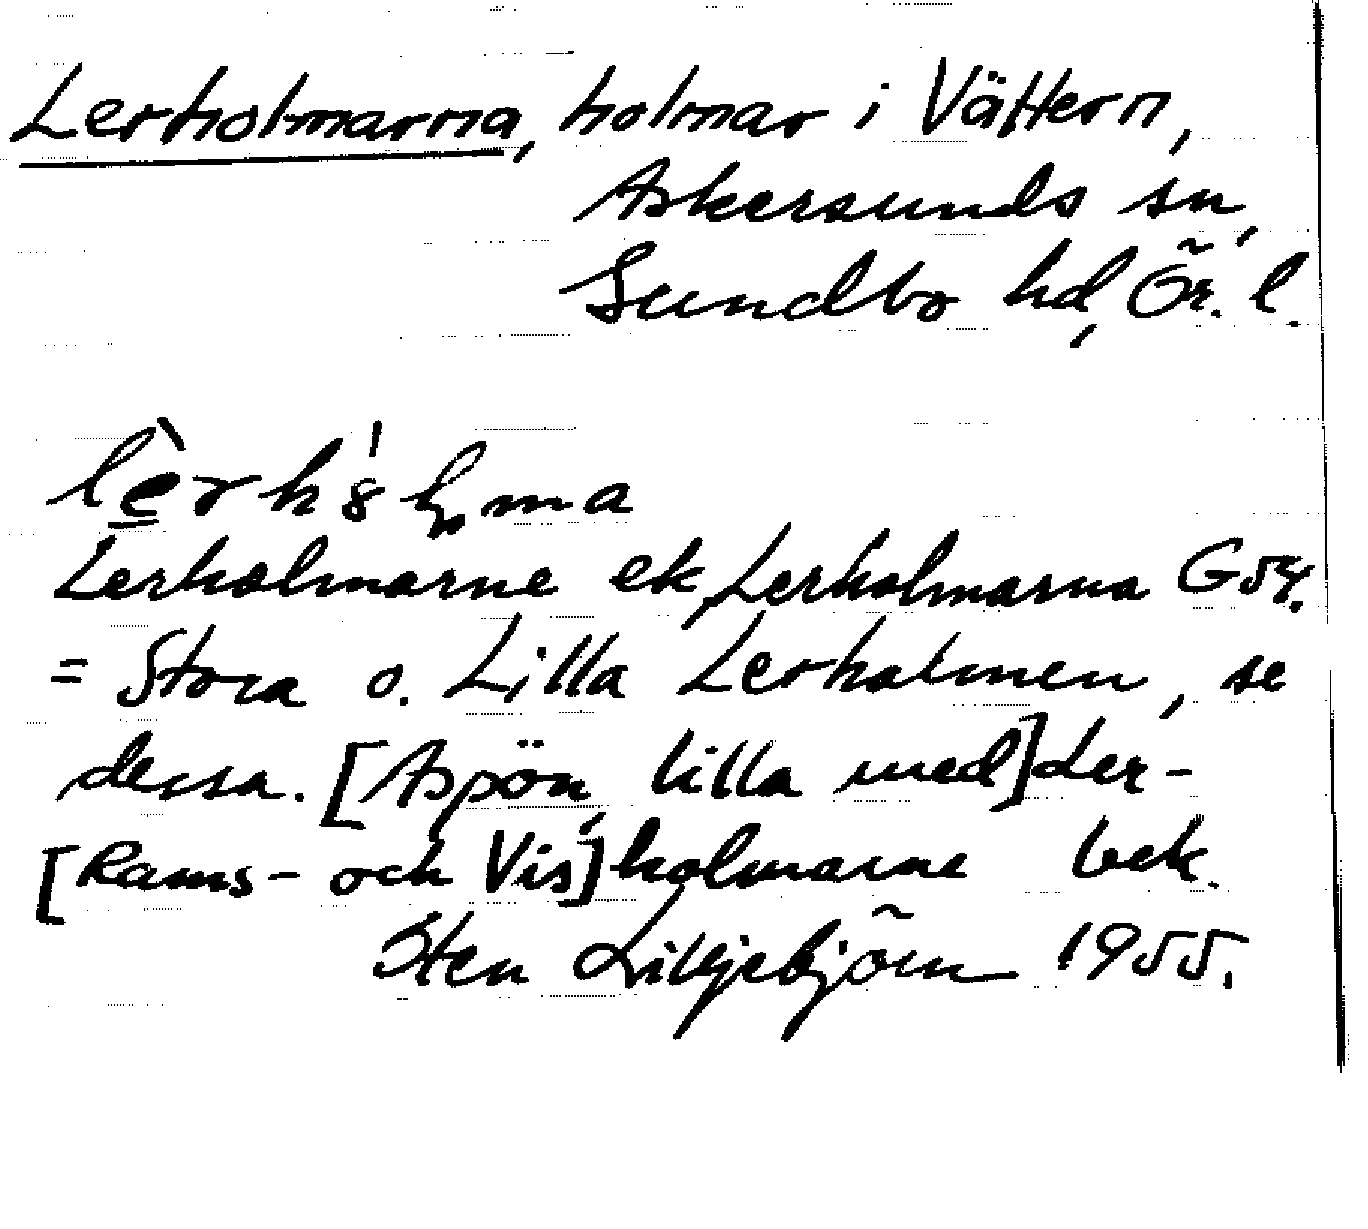 Lerholmarna, holmar i Vättern,
Askersunds sn,
Sundbo hd, Ör. l.
Lerholmarne ek, Lerholmarna G54.
= Stora o. Lilla Lerholmen, se
dessa. [Aspön, lilla med] Ler-
[Rams- och Vis]holmarne bek.
Sten Lilljebjörn 1955.